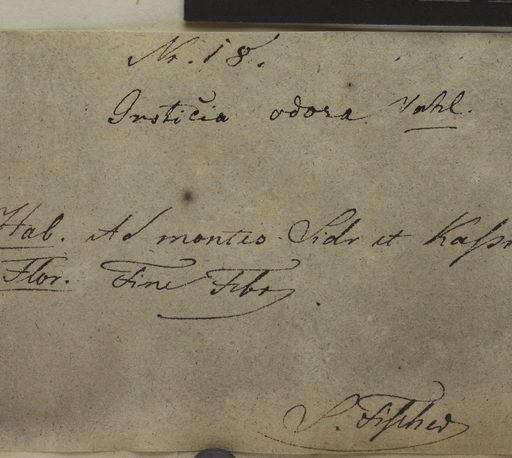 Nr. 18.
Justicia odora Vahl.
Hab. Ad montes Sidr et Kassr
Flor. Fine Febr.
S. Fischer